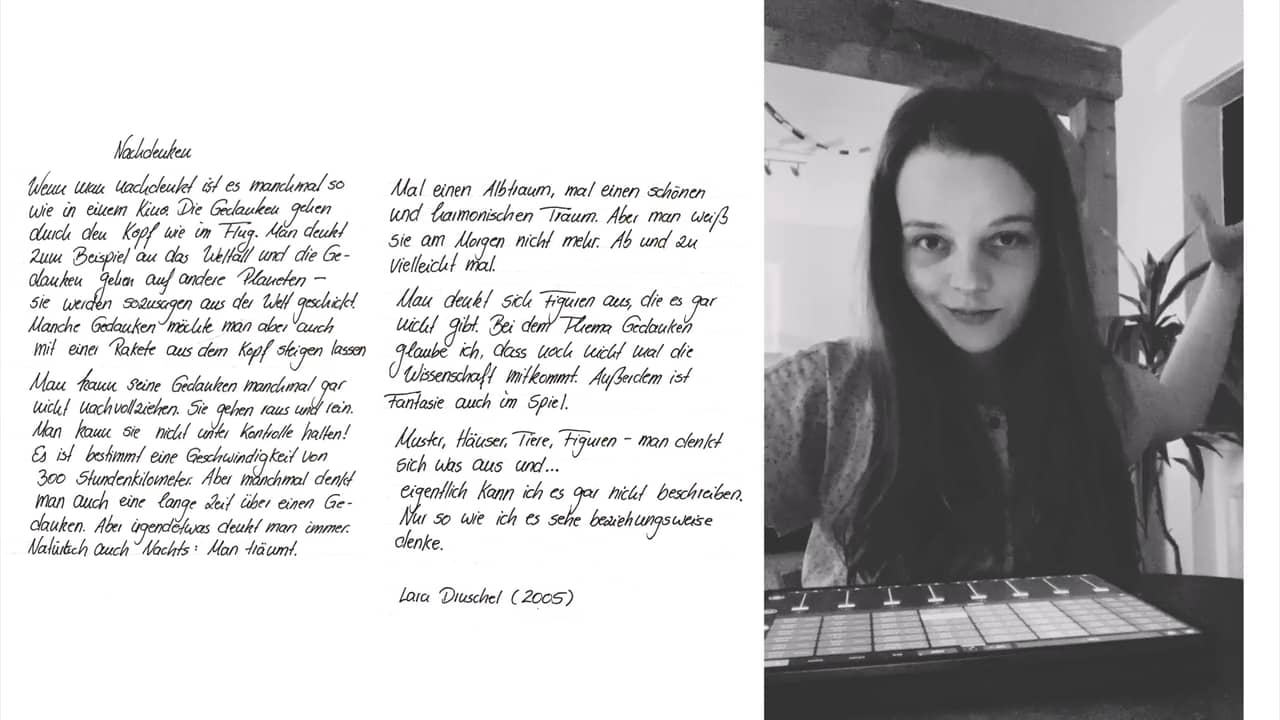 Nachdenken
Wenn man nachdenkt ist es manchmal so
wie in einem Kino. Die Gedanken gehen
durch den Kopf wie im Flug. Man denkt
zum Beispiel an das Weltall und die Ge-
danken gehen auf andere Planeten –
sie werden sozusagen aus der Welt geschickt.
Manche Gedanken möchte man aber auch
mit einer Rakete aus dem Kopf steigen lassen
Man kann seine Gedanken manchmal gar
nicht nachvollziehen. Sie gehen raus und rein.
Man kann sie nicht unter Kontrolle halten!
Es ist bestimmt eine Geschwindigkeit von
300 Stundenkilometer. Aber manchmal denkt
man auch eine lange Zeit über einen Ge-
danken. Aber irgendetwas denkt man immer.
Natürlich auch Nachts: Man träumt.
Mal einen Albtraum, mal einen schönen
und harmonischen Traum. Aber man weiß
sie am Morgen nicht mehr. Ab und zu
vielleicht mal.
Man denkt sich Figuren aus, die es gar
nicht gibt. Bei dem Thema Gedanken
glaube ich, dass noch nicht mal die
Wissenschaft mitkommt. Außerdem ist
Fantasie auch im Spiel.
Muster, Häuser, Tiere, Figuren – man denkt
sich was aus und...
eigentlich kann ich es gar nicht beschreiben.
Nur so wie ich es sehe beziehungsweise
denke.
Lara Druschel (2005)